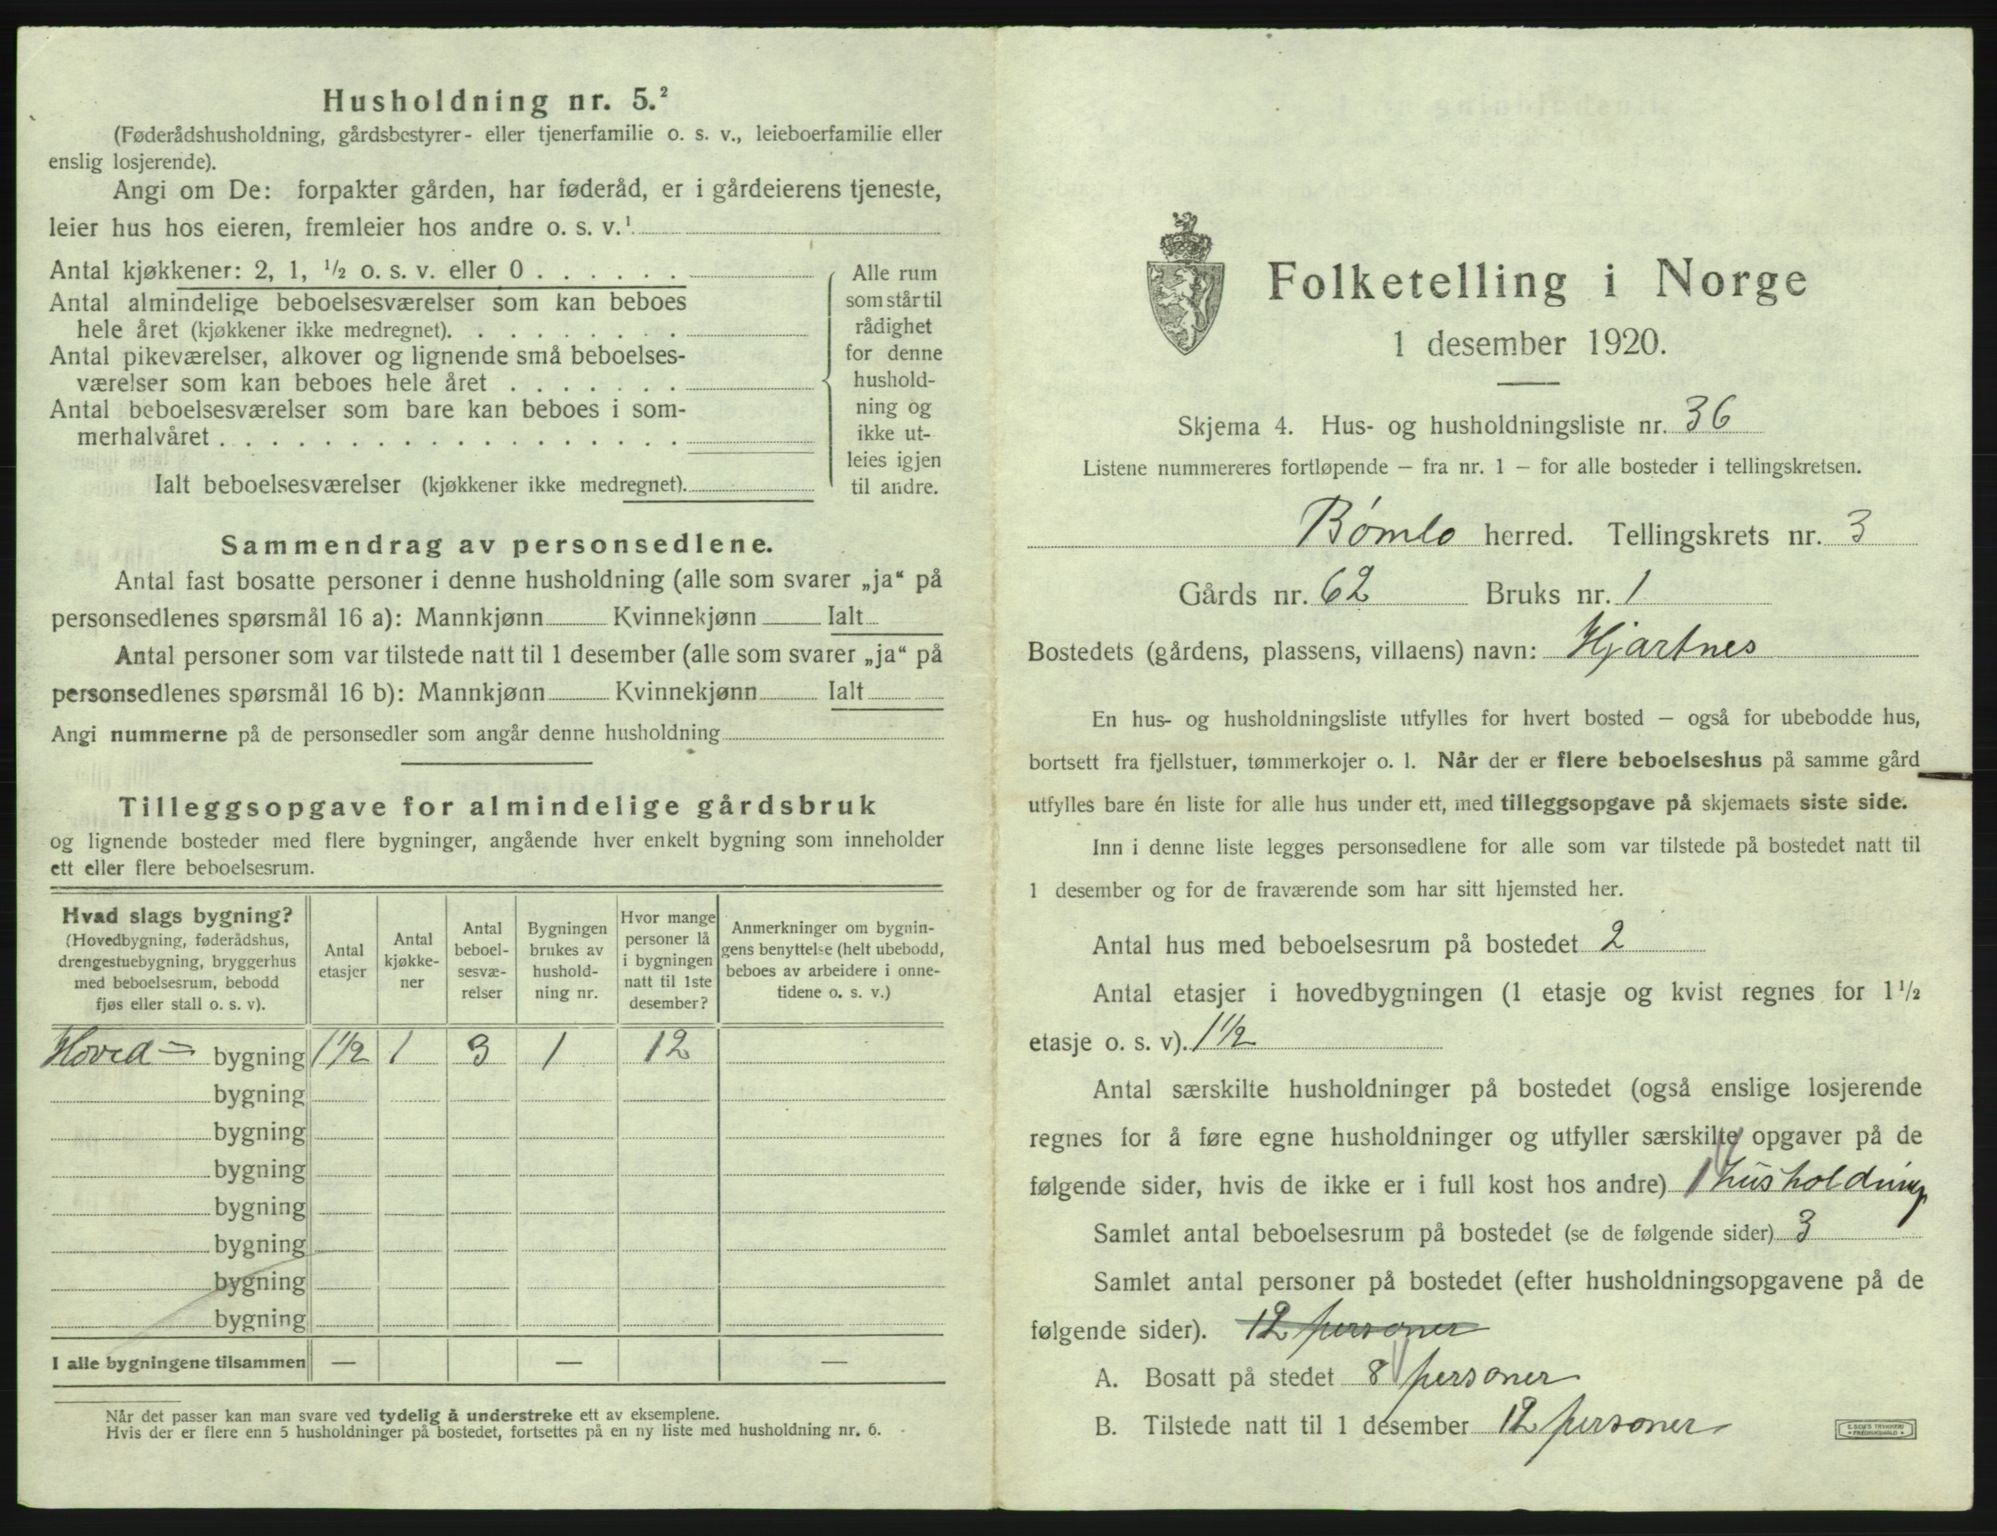 Husholdning nr. 5.²
(Føderådshusholdning, gårdsbestyrer- eller tjenerfamilie o. s. v., leieboerfamilie eller
enslig losjerende).
Angi om De: forpakter gården, har føderåd, er i gårdeierens tjeneste,
leier hus hos eieren, fremleier hos andre o. s. v.¹
Antal kjøkkener: 2, 1, ½ o. s. v. eller 0 . . . . . .
Antal almindelige beboelsesværelser som kan beboes
hele året (kjøkkener ikke medregnet). . . . . . . . .
Antal pikeværelser, alkover og lignende små beboelses-
værelser som kan beboes hele året . . . . . . .
Antal beboelsesværelser som bare kan beboes i som-
merhalvåret . . . . . . . . . . . . . . . . . .
Ialt beboelsesværelser (kjøkkener ikke medregnet).
Alle rum
som står til
rådighet
for denne
hushold-
ning og
ikke ut-
leies igjen
til andre.
Sammendrag av personsedlene.
Antal fast bosatte personer i denne husholdning (alle som svarer „ja“ på
personsedlenes spørsmål 16 a): Mannkjønn Kvinnekjønn Ialt
Antal personer som var tilstede natt til 1 desember (alle som svarer „ja“ på
personsedlenes spørsmål 16 b): Mannkjønn Kvinnekjønn Ialt
Angi nummerne på de personsedler som angår denne husholdning
Tilleggsopgave for almindelige gårdsbruk
og lignende bosteder med flere bygninger, angående hver enkelt bygning som inneholder
ett eller flere beboelsesrum.
Hvad slags bygning?
(Hovedbygning, føderådshus,
drengestuebygning, bryggerhus
med beboelsesrum, bebodd
fjøs eller stall o. s. v).
Antal
etasjer
Antal
kjøkke-
ner
Antal
beboel-
sesvæ-
relser
Bygningen
brukes av
hushold-
ning nr.
Hvor mange
personer lå
i bygningen
natt til 1ste
desember?
Anmerkninger om bygnin-
gens benyttelse (helt ubebodd,
beboes av arbeidere i onne-
tidene o. s. v.)
Hoved= bygning 1½ 1 3 1 12
bygning
bygning
bygning
bygning
bygning
bygning
bygning
I alle bygningene tilsammen — — —
Når det passer kan man svare ved tydelig å understreke ett av eksemplene.
Hvis der er flere enn 5 husholdninger på bostedet, fortsettes på en ny liste med husholdning nr. 6.
Folketelling i Norge
1 desember 1920.
Skjema 4. Hus- og husholdningsliste nr. 36
Listene nummereres fortløpende – fra nr. 1 – for alle bosteder i tellingskretsen.
Bømlo herred. Tellingskrets nr. 3
Gårds nr. 62 Bruks nr. 1
Bostedets (gårdens, plassens, villaens) navn: Hjartnes
En hus- og husholdningsliste utfylles for hvert bosted – også for ubebodde hus,
bortsett fra fjellstuer, tømmerkojer o. l. Når der er flere beboelseshus på samme gård
utfylles bare én liste for alle hus under ett, med tilleggsopgave på skjemaets siste side.
Inn i denne liste legges personsedlene for alle som var tilstede på bostedet natt til
1 desember og for de fraværende som har sitt hjemsted her.
Antal hus med beboelsesrum på bostedet 2
Antal etasjer i hovedbygningen (1 etasje og kvist regnes for 1½
etasje o. s. v). 1½
Antal særskilte husholdninger på bostedet (også enslige losjerende
regnes for å føre egne husholdninger og utfyller særskilte opgaver på de
følgende sider, hvis de ikke er i full kost hos andre) 1 husholdning
Samlet antal beboelsesrum på bostedet (se de følgende sider) 3
Samlet antal personer på bostedet (efter husholdningsopgavene på de
følgende sider). 12 personer
A. Bosatt på stedet 8 personer
B. Tilstede natt til 1 desember 12 personer